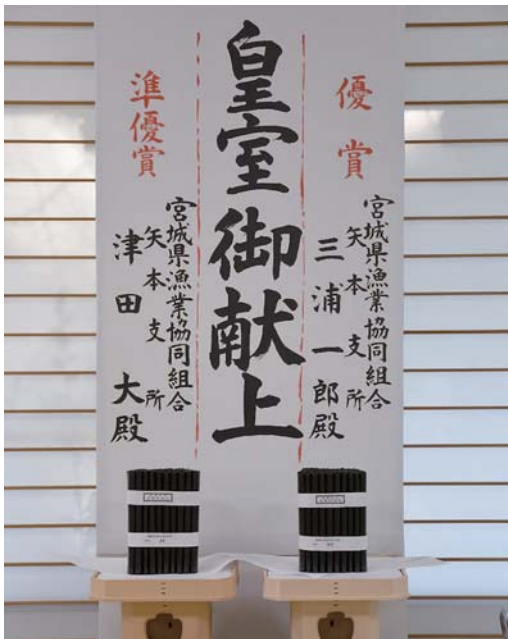 優賞
宮城県漁業協同組合
矢本支所
三浦一郎殿
皇室御献上
準優賞
宮城県漁業協同組合
矢本支所
津田大殿